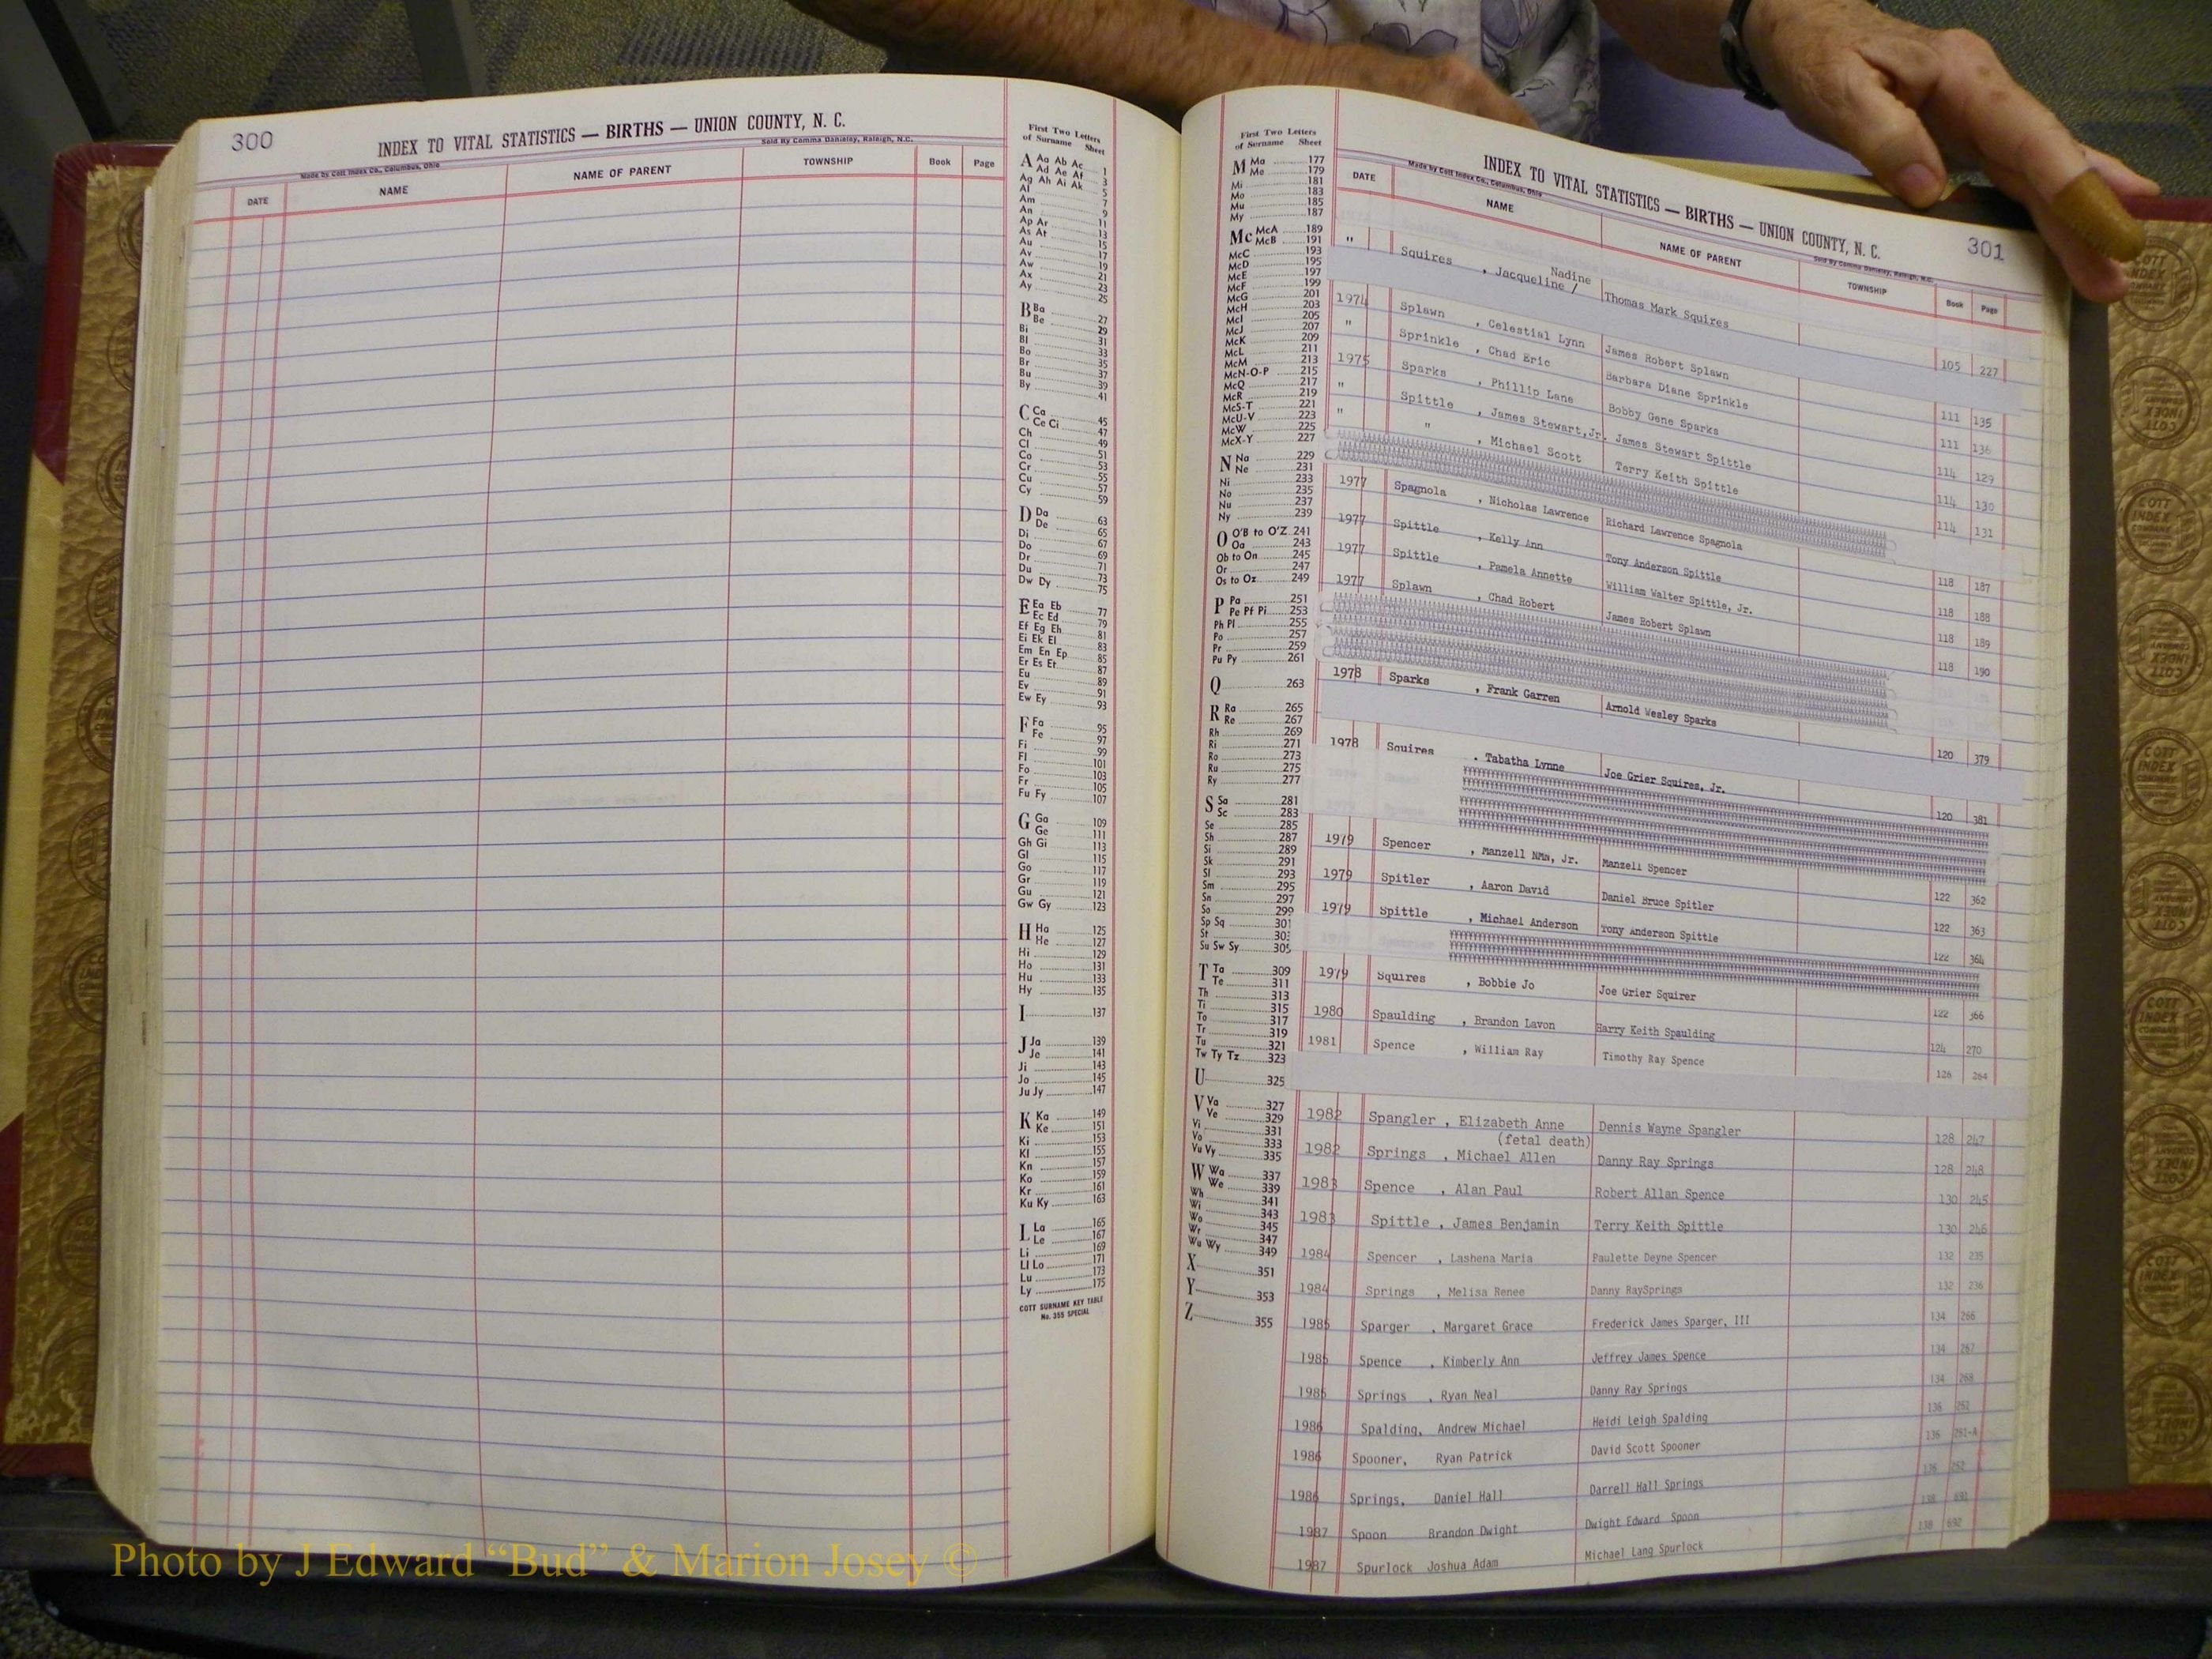 300
INDEX TO VITAL STATISTICS — BIRTHS — UNION COUNTY, N. C.
Made by Cott Index Co., Columbus, Ohio
Sold By Comma Danieley, Raleigh, N.C.
DATE NAME NAME OF PARENT TOWNSHIP Book Page
First Two Letters
of Surname Sheet
A Aa Ab Ac 1
Ad Ae Af 3
Ag Ah Ai Ak 5
Al 7
Am 9
An 11
Ap Ar 13
As At 15
Au 17
Av 19
Aw 21
Ax 23
Ay 25
B Ba 27
Be 29
Bi 31
Bl 33
Bo 35
Br 37
Bu 39
By 41
C Ca 45
Ce Ci 47
Ch 49
Cl 51
Co 53
Cr 55
Cu 57
Cy 59
D Da 63
De 65
Di 67
Do 69
Dr 71
Du 73
Dw Dy 75
E Ea Eb 77
Ec Ed 79
Ef Eg Eh 81
Ei Ek El 83
Em En Ep 85
Er Es Et 87
Eu 89
Ev 91
Ew Ey 93
F Fa 95
Fe 97
Fi 99
Fl 101
Fo 103
Fr 105
Fu Fy 107
G Ga 109
Ge 111
Gh Gi 113
Gl 115
Go 117
Gr 119
Gu 121
Gw Gy 123
H Ha 125
He 127
Hi 129
Ho 131
Hu 133
Hy 135
I 137
J Ja 139
Je 141
Ji 143
Jo 145
Ju Jy 147
K Ka 149
Ke 151
Ki 153
Kl 155
Kn 157
Ko 159
Kr 161
Ku Ky 163
L La 165
Le 167
Li 169
Ll Lo 171
Lu 173
Ly 175
COTT SURNAME KEY TABLE
No. 355 SPECIAL
First Two Letters
of Surname Sheet
M Ma 177
Me 179
Mi 181
Mo 183
Mu 185
My 187
Mc McA 189
McB 191
McC 193
McD 195
McE 197
McF 199
McG 201
McH 203
McI 205
McJ 207
McK 209
McL 211
McM 213
McN-O-P 215
McQ 217
McR 219
McS-T 221
McU-V 223
McW 225
McX-Y 227
N Na 229
Ne 231
Ni 233
No 235
Nu 237
Ny 239
O O'B to O'Z 241
Oa 243
Ob to On 245
Or 247
Os to Oz 249
P Pa 251
Pe Pf Pi 253
Ph Pl 255
Po 257
Pr 259
Pu Py 261
Q 263
R Ra 265
Re 267
Rh 269
Ri 271
Ro 273
Ru 275
Ry 277
S Sa 281
Sc 283
Se 285
Sh 287
Si 289
Sk 291
Sl 293
Sm 295
Sn 297
So 299
Sp Sq 301
St 303
Su Sw Sy 305
T Ta 309
Te 311
Th 313
Ti 315
To 317
Tr 319
Tu 321
Tw Ty Tz 323
U 325
V Va 327
Ve 329
Vi 331
Vo 333
Vu Vy 335
W Wa 337
We 339
Wh 341
Wi 343
Wo 345
Wr 347
Wu Wy 349
X 351
Y 353
Z 355
301
INDEX TO VITAL STATISTICS — BIRTHS — UNION COUNTY, N. C.
Made by Cott Index Co., Columbus, Ohio
Sold By Comma Danieley, Raleigh, N.C.
DATE NAME NAME OF PARENT TOWNSHIP Book Page
" Squires , Jacqueline / Nadine Thomas Mark Squires 105 227
1974 Splawn , Celestial Lynn James Robert Splawn 111 135
" Sprinkle , Chad Eric Barbara Diane Sprinkle 111 136
1975 Sparks , Phillip Lane Bobby Gene Sparks 114 129
" Spittle , James Stewart,Jr. James Stewart Spittle 114 130
" " , Michael Scott Terry Keith Spittle 114 131
1977 Spagnola , Nicholas Lawrence Richard Lawrence Spagnola 118 187
1977 Spittle , Kelly Ann Tony Anderson Spittle 118 188
1977 Spittle , Pamela Annette William Walter Spittle, Jr. 118 189
1977 Splawn , Chad Robert James Robert Splawn 118 190
1978 Sparks , Frank Garren Arnold Wesley Sparks 120 379
1978 Squires , Tabatha Lynne Joe Grier Squires, Jr. 120 381
1979 Spencer , Manzell NMn, Jr. Manzell Spencer 122 362
1979 Spitler , Aaron David Daniel Bruce Spitler 122 363
1979 Spittle , Michael Anderson Tony Anderson Spittle 122 364
1979 Squires , Bobbie Jo Joe Grier Squirer 122 366
1980 Spaulding , Brandon Lavon Harry Keith Spaulding 124 270
1981 Spence , William Ray Timothy Ray Spence 126 264
1982 Spangler , Elizabeth Anne Dennis Wayne Spangler 128 247
(fetal death)
1982 Springs , Michael Allen Danny Ray Springs 128 248
1983 Spence , Alan Paul Robert Allan Spence 130 245
1983 Spittle , James Benjamin Terry Keith Spittle 130 246
1984 Spencer , Lashena Maria Paulette Deyne Spencer 132 235
1984 Springs , Melisa Renee Danny RaySprings 132 236
1985 Sparger , Margaret Grace Frederick James Sparger, III 134 266
1985 Spence , Kimberly Ann Jeffrey James Spence 134 267
1985 Springs , Ryan Neal Danny Ray Springs 134 268
1986 Spalding, Andrew Michael Heidi Leigh Spalding 136 251
1986 Spooner, Ryan Patrick David Scott Spooner 136 251-A
1986 Springs, Daniel Hall Darrell Hall Springs 136 252
1987 Spoon Brandon Dwight Dwight Edward Spoon 138 691
1987 Spurlock Joshua Adam Michael Lang Spurlock 138 692
Photo by J Edward “Bud” & Marion Josey ©